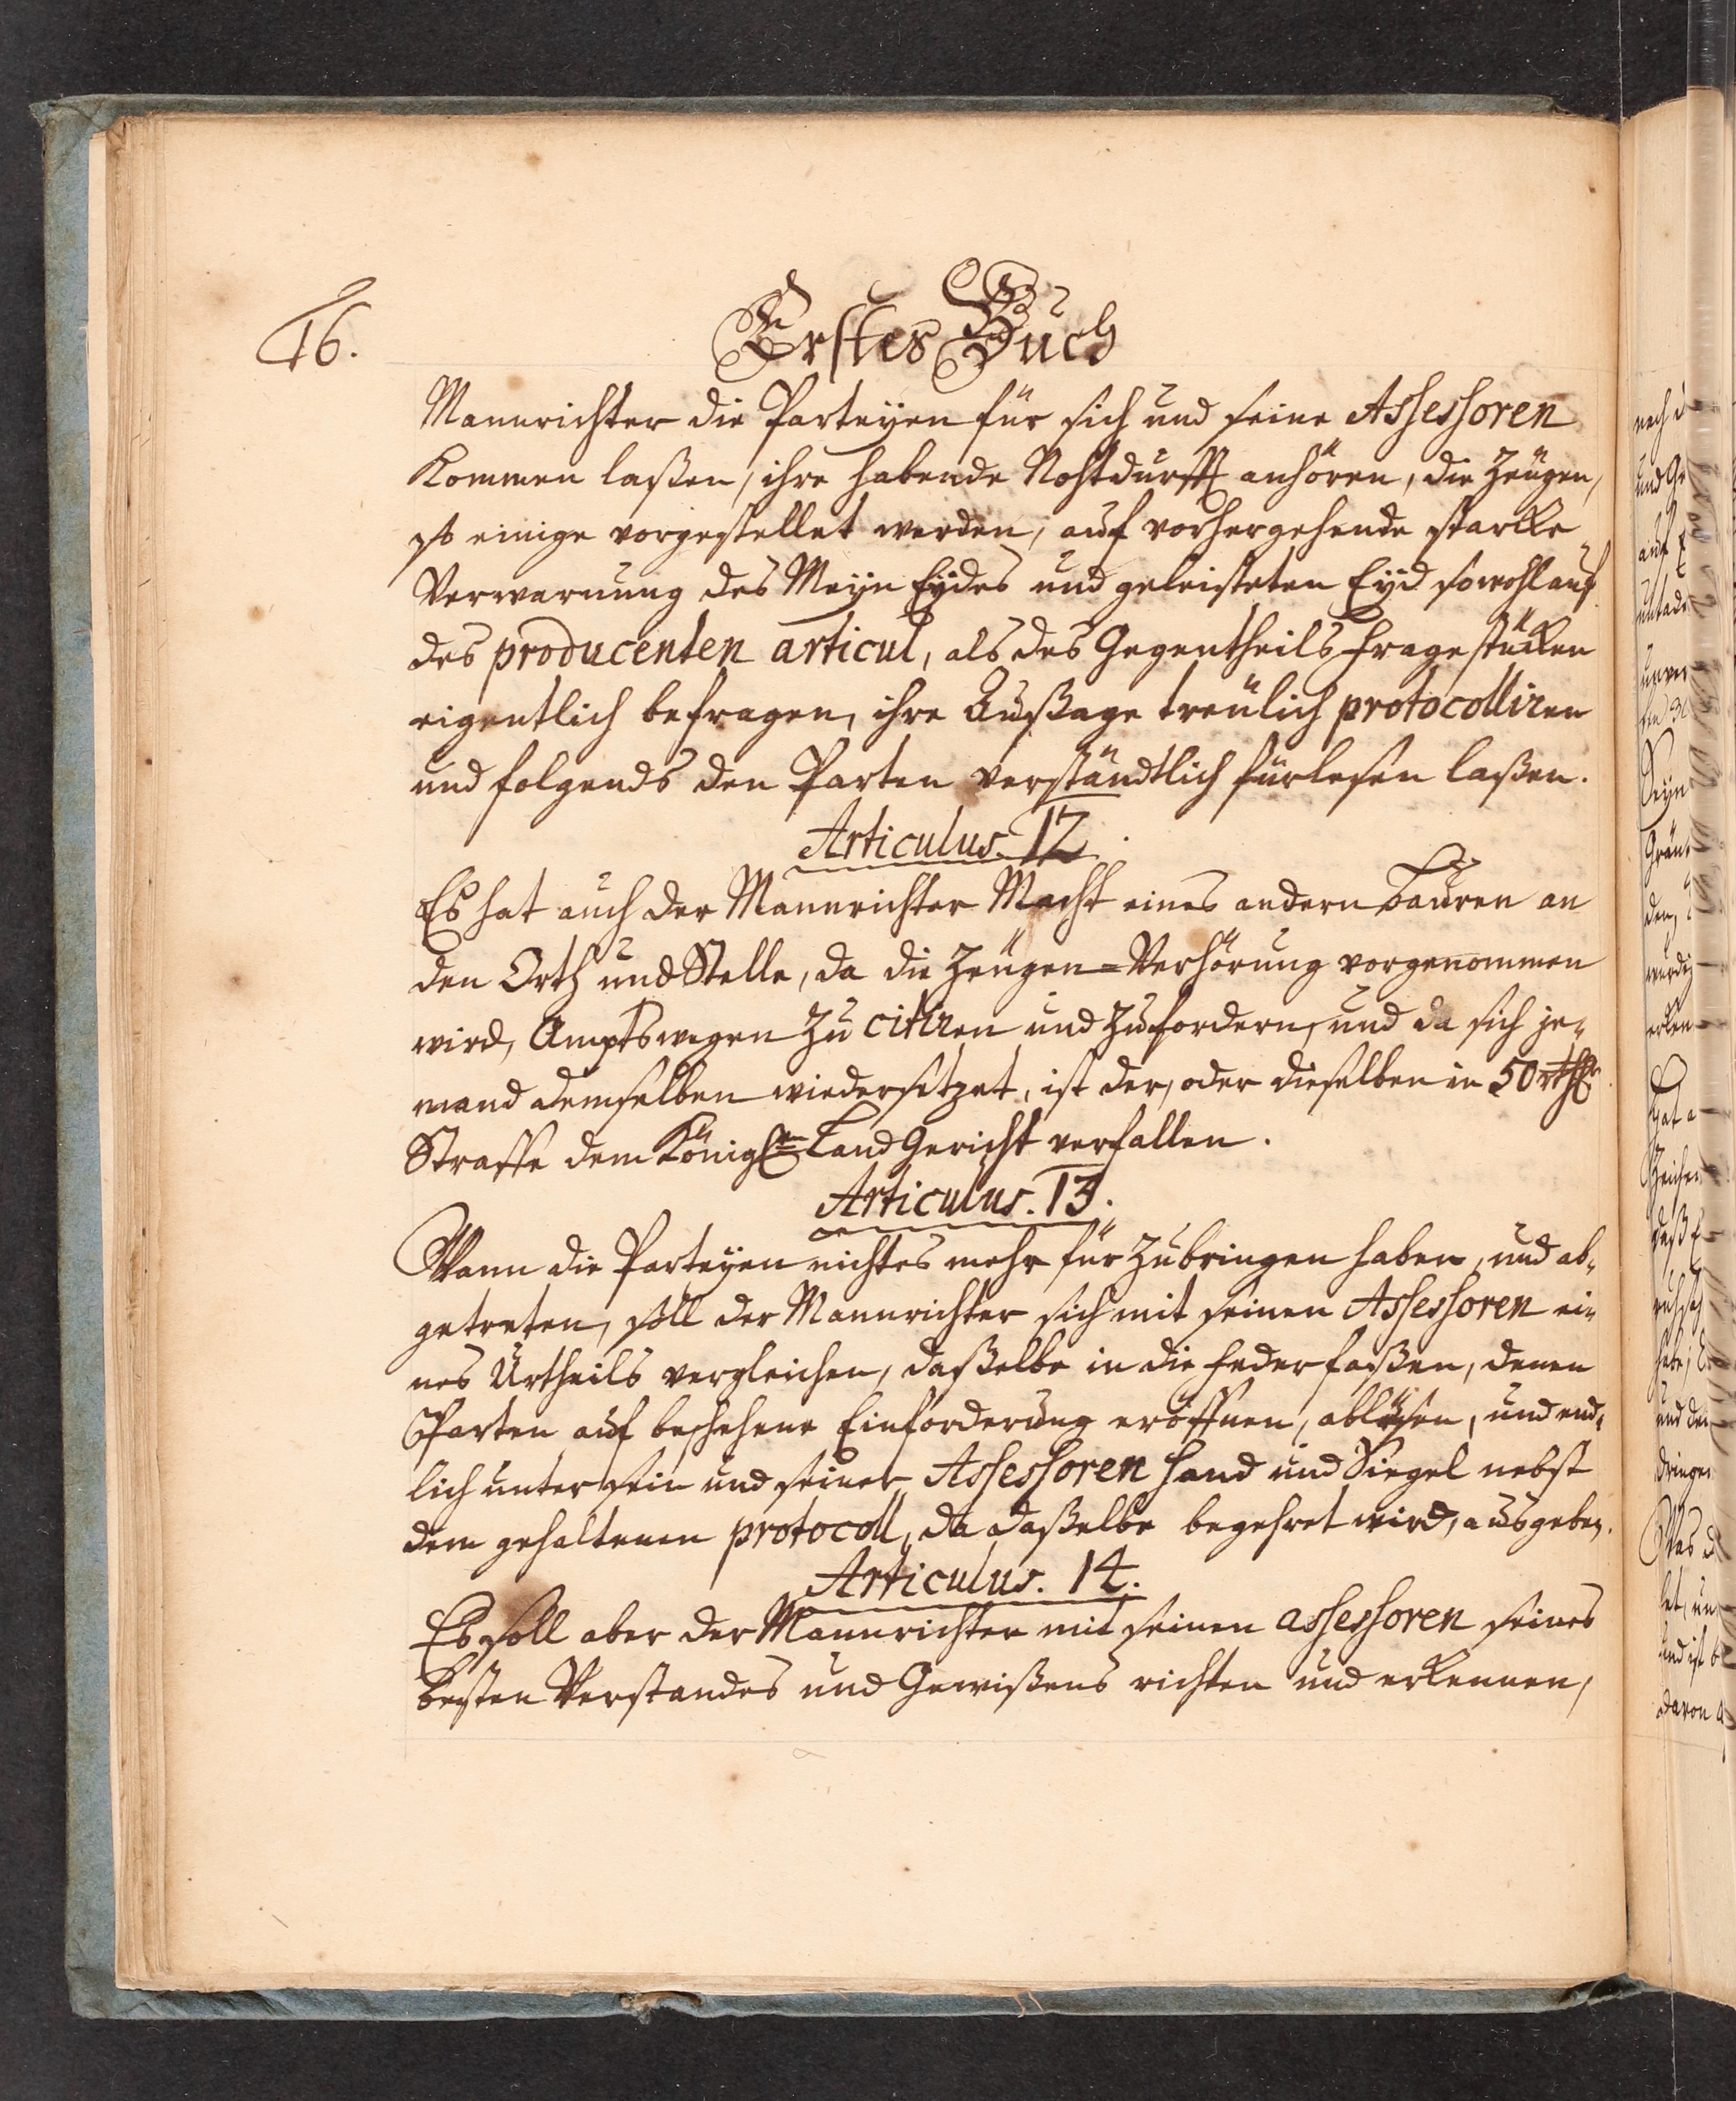 16.
Erstes Buch
Mannrichter die Parteyen für sich und seine Assessoren
kommen laßen, ihre habende Nohtdurfft anhören, die Zeugen,
so einige vorgestellet werden, auf vorhergehende starcke
Verwarnung des Meyn Eydes und geleisteten Eyd sowohl auf
des producenten articul, als des Gegentheils Fragestücken
eigentlich befragen, ihre Außage treulich protocolliren
und folgends den Parten verständtlich fürlesen laßen.
Articulus. 12.
Es hat auch der Mannrichter Macht eines andern Bauren an
den Orth und Stelle, da die Zeugen-Verhörung vorgenommen
wird, Amptswegen zu citiren und zu fordern, und da sich je-
mand demselben wiedersetzet, ist der, oder dieselben in 50 rthlr
Straffe dem Königl. Land Gericht verfallen.
Articulus. 13.
Wann die Parteyen nichtes mehr für zu bringen haben, und ab-
getreten, soll der Mannrichter sich mit seinen Assessoren ei-
nes Urtheils vergleichen, daßelbe in die Feder faßen, denen
Parten auf beschehene Einforderung eröffnen, ablesen, und end-
lich unter sein und seiner Assessoren Hand und Siegel nebst
dem gehaltenen protocoll, da daßelbe begehret wird, ausgeben.
Articulus. 14.
Es soll aber der Mannrichter mit seinen assessoren seines
besten Verstandes und Gewißens richten und erkennen,